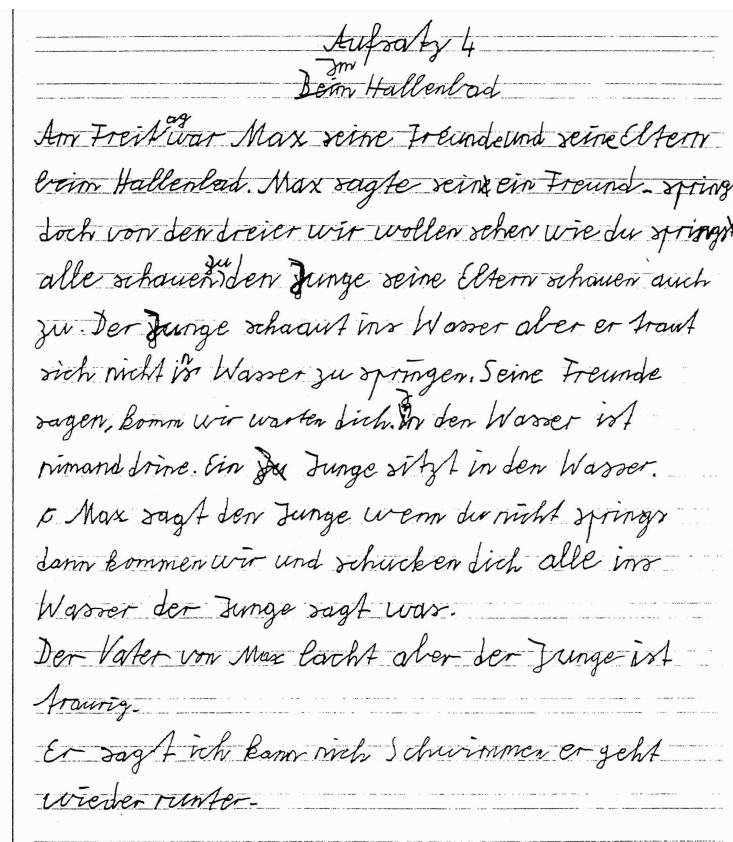 Aufsatz 4
Im
Beim Hallenbad
Am Freitag war Max seine Freunde und seine Eltern
beim Hallenbad. Max sagte sein ein Freund - spring
doch von den dreier wir wollen sehen wie du springst
alle schauen zu den Junge seine Eltern schauen auch
zu. Der Junge schaaut ins Wasser aber er traut
sich nicht ins Wasser zu springen. Seine Freunde
sagen, komm wir warten dich. In den Wasser ist
nimand drine. Ein Junge sitzt in den Wasser.
Max sagt den Junge wenn du nicht springs
dann kommen wir und schucken dich alle ins
Wasser der Junge sagt was.
Der Vater von Max lacht aber der Junge ist
traurig.
Er sagt ich kann nich Schwimmen er geht
wieder runter.